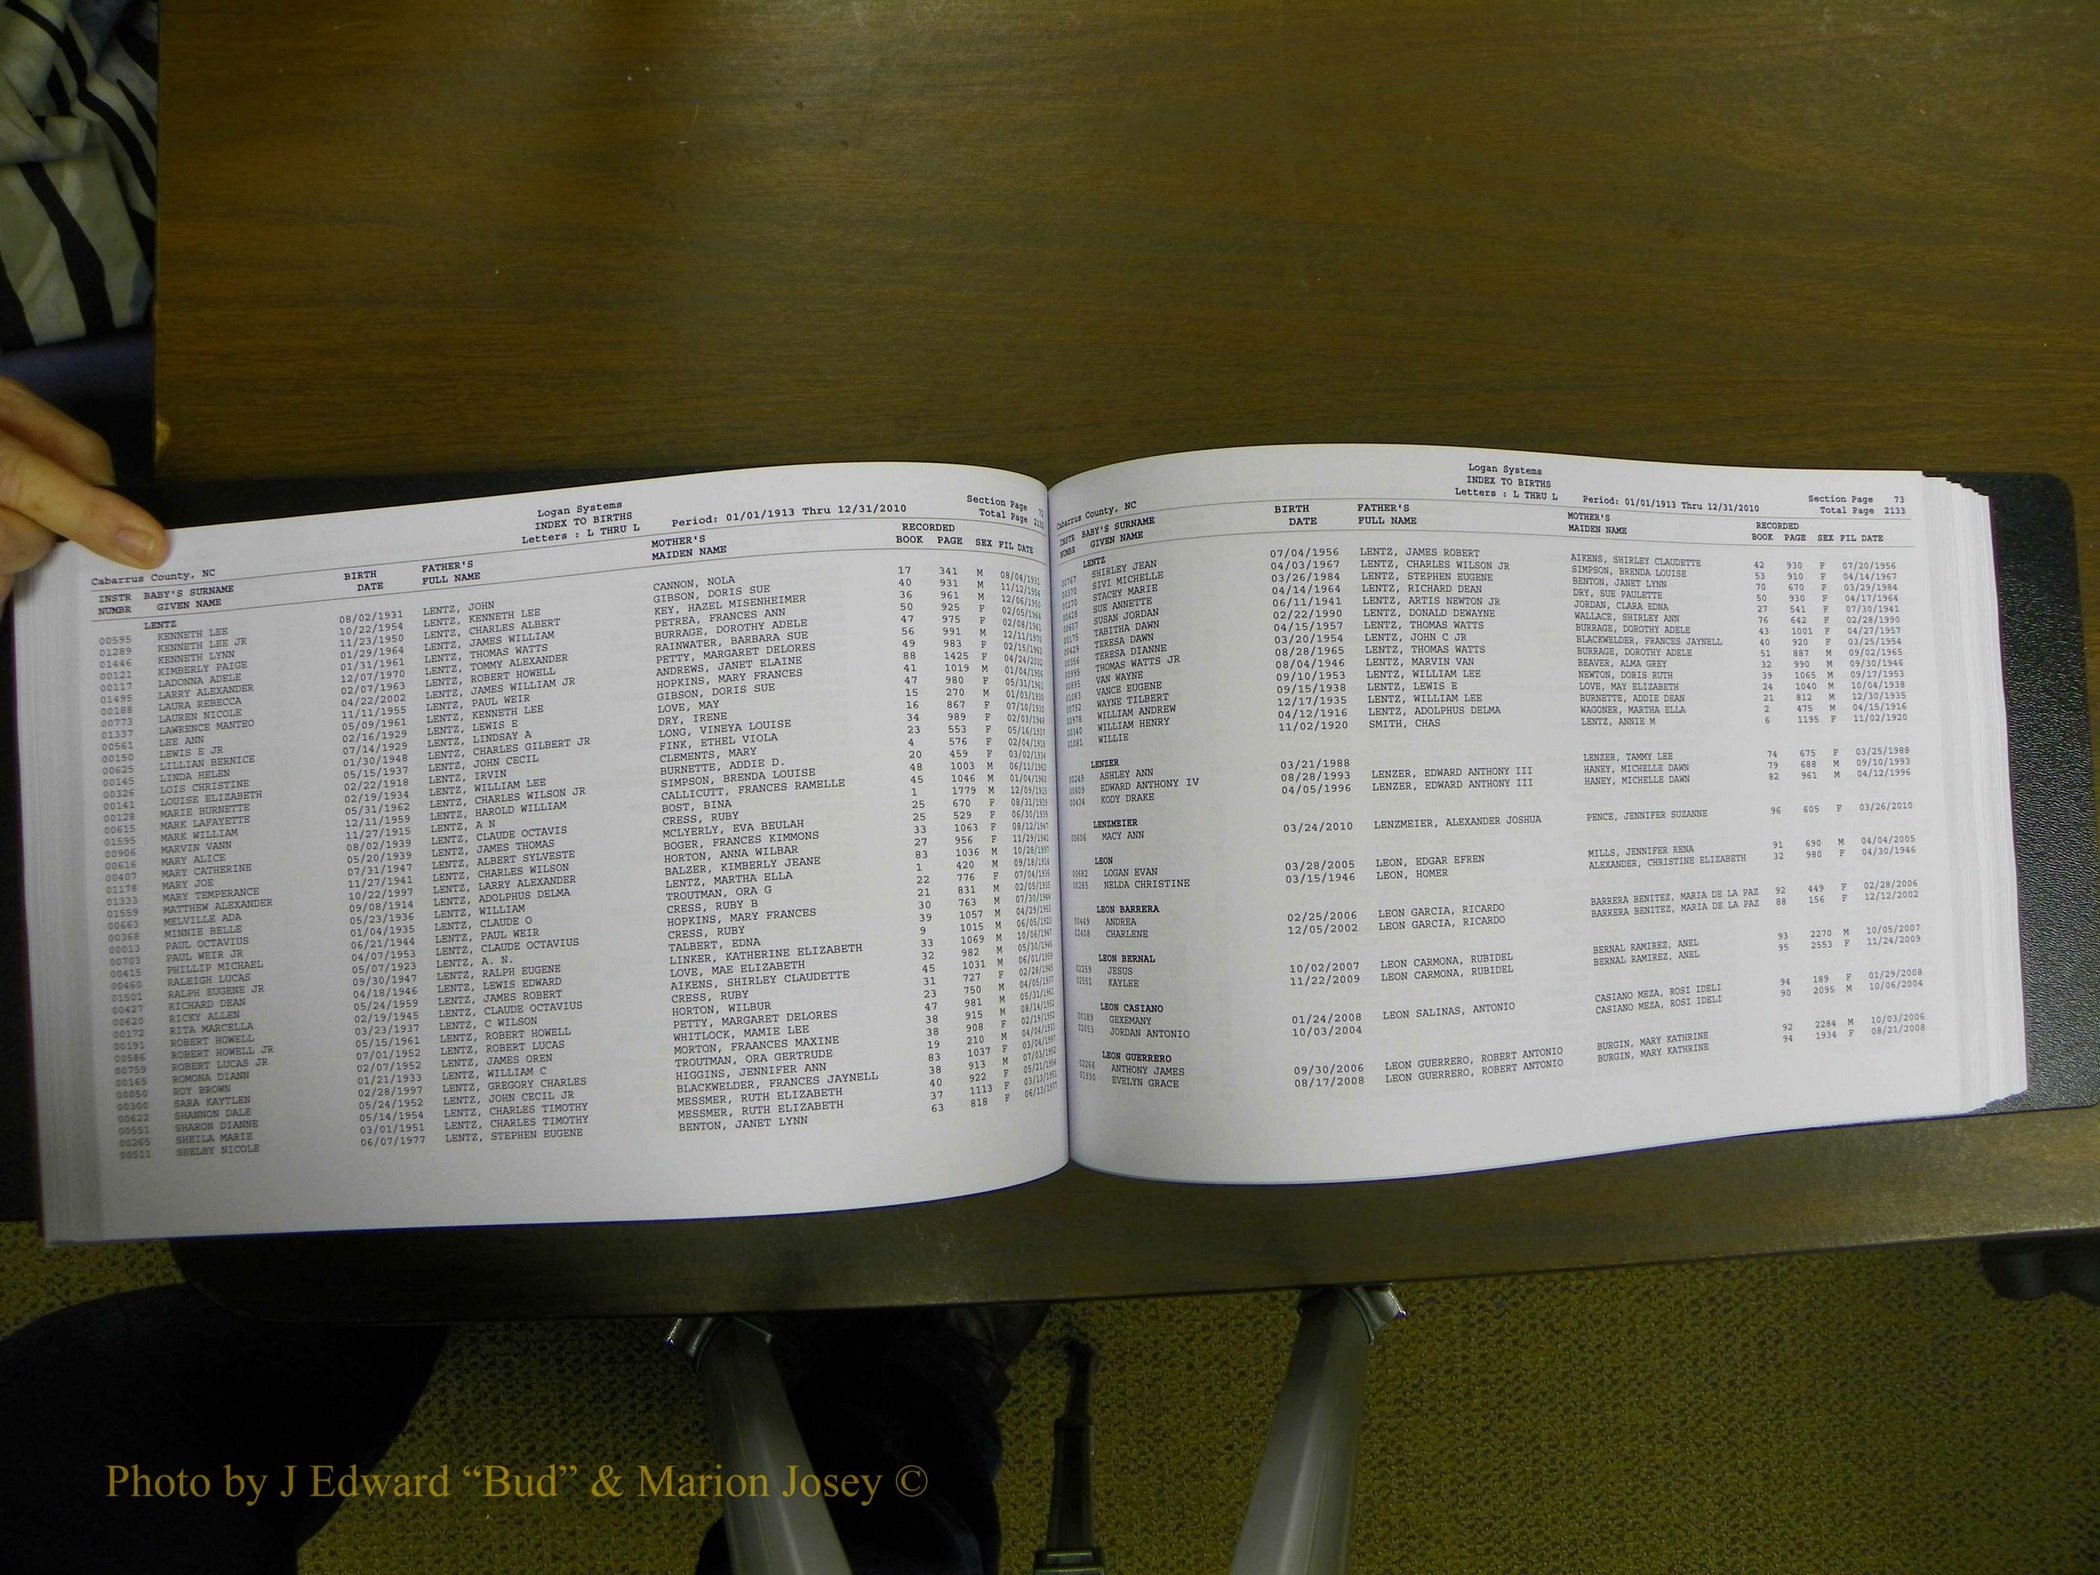 Logan Systems
INDEX TO BIRTHS
Letters : L THRU L Period: 01/01/1913 Thru 12/31/2010
Section Page 72
Total Page 2132
Cabarrus County, NC
INSTR BABY'S SURNAME BIRTH FATHER'S MOTHER'S RECORDED
NUMBR GIVEN NAME DATE FULL NAME MAIDEN NAME BOOK PAGE SEX FIL DATE
LENTZ
00595 KENNETH LEE 08/02/1931 LENTZ, JOHN CANNON, NOLA 17 341 M 08/04/1931
01289 KENNETH LEE JR 10/22/1954 LENTZ, KENNETH LEE GIBSON, DORIS SUE 40 931 M 11/12/1954
01446 KENNETH LYNN 11/23/1950 LENTZ, CHARLES ALBERT KEY, HAZEL MISENHEIMER 36 961 M 12/06/1950
00121 KIMBERLY PAIGE 01/29/1964 LENTZ, JAMES WILLIAM PETREA, FRANCES ANN 50 925 F 02/05/1964
00117 LADONNA ADELE 01/31/1961 LENTZ, THOMAS WATTS BURRAGE, DOROTHY ADELE 47 975 F 02/08/1961
01495 LARRY ALEXANDER 12/07/1970 LENTZ, TOMMY ALEXANDER RAINWATER, BARBARA SUE 56 991 M 12/11/1970
00188 LAURA REBECCA 02/07/1963 LENTZ, ROBERT HOWELL PETTY, MARGARET DELORES 49 983 F 02/15/1963
00773 LAUREN NICOLE 04/22/2002 LENTZ, JAMES WILLIAM JR ANDREWS, JANET ELAINE 88 1425 F 04/24/2002
01337 LAWRENCE MANTEO 11/11/1955 LENTZ, PAUL WEIR HOPKINS, MARY FRANCES 41 1019 M 01/04/1956
00561 LEE ANN 05/09/1961 LENTZ, KENNETH LEE GIBSON, DORIS SUE 47 980 F 05/31/1961
00150 LEWIS E JR 02/16/1929 LENTZ, LEWIS E LOVE, MAY 15 270 M 01/03/1930
00625 LILLIAN BERNICE 07/14/1929 LENTZ, LINDSAY A DRY, IRENE 16 867 F 07/10/1930
00145 LINDA HELEN 01/30/1948 LENTZ, CHARLES GILBERT JR LONG, VINEYA LOUISE 34 989 F 02/03/1948
00326 LOIS CHRISTINE 05/15/1937 LENTZ, JOHN CECIL FINK, ETHEL VIOLA 23 553 F 05/16/1937
00141 LOUISE ELIZABETH 02/22/1918 LENTZ, IRVIN CLEMENTS, MARY 4 576 F 02/04/1918
00128 MARIE BURNETTE 02/19/1934 LENTZ, WILLIAM LEE BURNETTE, ADDIE D. 20 459 F 03/02/1934
00615 MARK LAFAYETTE 05/31/1962 LENTZ, CHARLES WILSON JR SIMPSON, BRENDA LOUISE 48 1003 M 06/11/1962
01595 MARK WILLIAM 12/11/1959 LENTZ, HAROLD WILLIAM CALLICUTT, FRANCES RAMELLE 45 1046 M 01/04/1960
00906 MARVIN VANN 11/27/1915 LENTZ, A N BOST, BINA 1 1779 M 12/09/1915
00616 MARY ALICE 08/02/1939 LENTZ, CLAUDE OCTAVIS CRESS, RUBY 25 670 F 08/31/1939
00407 MARY CATHERINE 05/20/1939 LENTZ, JAMES THOMAS MCLYERLY, EVA BEULAH 25 529 F 06/30/1939
01178 MARY JOE 07/31/1947 LENTZ, ALBERT SYLVESTE BOGER, FRANCES KIMMONS 33 1063 F 08/12/1947
01333 MARY TEMPERANCE 11/27/1941 LENTZ, CHARLES WILSON HORTON, ANNA WILBAR 27 956 F 11/29/1941
01559 MATTHEW ALEXANDER 10/22/1997 LENTZ, LARRY ALEXANDER BALZER, KIMBERLY JEANE 83 1036 M 10/28/1997
00663 MELVILLE ADA 09/08/1914 LENTZ, ADOLPHUS DELMA LENTZ, MARTHA ELLA 1 420 M 09/18/1914
00368 MINNIE BELLE 05/23/1936 LENTZ, WILLIAM TROUTMAN, ORA G 22 776 F 07/04/1936
00013 PAUL OCTAVIUS 01/04/1935 LENTZ, CLAUDE O CRESS, RUBY B 21 831 M 02/05/1935
00703 PAUL WEIR JR 06/21/1944 LENTZ, PAUL WEIR HOPKINS, MARY FRANCES 30 763 M 07/30/1944
00415 PHILLIP MICHAEL 04/07/1953 LENTZ, CLAUDE OCTAVIUS CRESS, RUBY 39 1057 M 04/29/1953
00460 RALEIGH LUCAS 05/07/1923 LENTZ, A. N. TALBERT, EDNA 9 1015 M 06/05/1923
01501 RALPH EUGENE JR 09/30/1947 LENTZ, RALPH EUGENE LINKER, KATHERINE ELIZABETH 33 1069 M 10/06/1947
00427 RICHARD DEAN 04/18/1946 LENTZ, LEWIS EDWARD LOVE, MAE ELIZABETH 32 982 M 05/30/1946
00620 RICKY ALLEN 05/24/1959 LENTZ, JAMES ROBERT AIKENS, SHIRLEY CLAUDETTE 45 1031 M 06/01/1959
00172 RITA MARCELLA 02/19/1945 LENTZ, CLAUDE OCTAVIUS CRESS, RUBY 31 727 F 02/28/1945
00191 ROBERT HOWELL 03/23/1937 LENTZ, C WILSON HORTON, WILBUR 23 750 M 04/05/1937
00586 ROBERT HOWELL JR 05/15/1961 LENTZ, ROBERT HOWELL PETTY, MARGARET DELORES 47 981 M 05/31/1961
00759 ROBERT LUCAS JR 07/01/1952 LENTZ, ROBERT LUCAS WHITLOCK, MAMIE LEE 38 915 M 08/14/1952
00165 ROMONA DIANN 02/07/1952 LENTZ, JAMES OREN MORTON, FRAANCES MAXINE 38 908 F 02/19/1952
00050 ROY BROWN 01/21/1933 LENTZ, WILLIAM C TROUTMAN, ORA GERTRUDE 19 210 M 04/04/1933
00300 SARA KAYTLEN 02/28/1997 LENTZ, GREGORY CHARLES HIGGINS, JENNIFER ANN 83 1037 F 03/04/1997
00622 SHANNON DALE 05/24/1952 LENTZ, JOHN CECIL JR BLACKWELDER, FRANCES JAYNELL 38 913 M 07/03/1952
00551 SHARON DIANNE 05/14/1954 LENTZ, CHARLES TIMOTHY MESSMER, RUTH ELIZABETH 40 922 F 05/21/1954
00265 SHEILA MARIE 03/01/1951 LENTZ, CHARLES TIMOTHY MESSMER, RUTH ELIZABETH 37 1113 F 03/13/1951
00511 SHELBY NICOLE 06/07/1977 LENTZ, STEPHEN EUGENE BENTON, JANET LYNN 63 818 F 06/13/1977
Logan Systems
INDEX TO BIRTHS
Letters : L THRU L Period: 01/01/1913 Thru 12/31/2010
Section Page 73
Total Page 2133
Cabarrus County, NC
INSTR BABY'S SURNAME BIRTH FATHER'S MOTHER'S RECORDED
NUMBR GIVEN NAME DATE FULL NAME MAIDEN NAME BOOK PAGE SEX FIL DATE
LENTZ
00767 SHIRLEY JEAN 07/04/1956 LENTZ, JAMES ROBERT AIKENS, SHIRLEY CLAUDETTE 42 930 F 07/20/1956
00370 SIVI MICHELLE 04/03/1967 LENTZ, CHARLES WILSON JR SIMPSON, BRENDA LOUISE 53 910 F 04/14/1967
00270 STACEY MARIE 03/26/1984 LENTZ, STEPHEN EUGENE BENTON, JANET LYNN 70 670 F 03/29/1984
00428 SUE ANNETTE 04/14/1964 LENTZ, RICHARD DEAN DRY, SUE PAULETTE 50 930 F 04/17/1964
00607 SUSAN JORDAN 06/11/1941 LENTZ, ARTIS NEWTON JR JORDAN, CLARA EDNA 27 541 F 07/30/1941
00175 TABITHA DAWN 02/22/1990 LENTZ, DONALD DEWAYNE WALLACE, SHIRLEY ANN 76 642 F 02/28/1990
00429 TERESA DAWN 04/15/1957 LENTZ, THOMAS WATTS BURRAGE, DOROTHY ADELE 43 1001 F 04/27/1957
00356 TERESA DIANNE 03/20/1954 LENTZ, JOHN C JR BLACKWELDER, FRANCES JAYNELL 40 920 F 03/25/1954
00995 THOMAS WATTS JR 08/28/1965 LENTZ, THOMAS WATTS BURRAGE, DOROTHY ADELE 51 887 M 09/02/1965
00895 VAN WAYNE 08/04/1946 LENTZ, MARVIN VAN BEAVER, ALMA GREY 32 990 M 09/30/1946
01083 VANCE EUGENE 09/10/1953 LENTZ, WILLIAM LEE NEWTON, DORIS RUTH 39 1065 M 09/17/1953
00752 WAYNE TILBERT 09/15/1938 LENTZ, LEWIS E LOVE, MAY ELIZABETH 24 1040 M 10/04/1938
00978 WILLIAM ANDREW 12/17/1935 LENTZ, WILLIAM LEE BURNETTE, ADDIE DEAN 21 812 M 12/30/1935
00340 WILLIAM HENRY 04/12/1916 LENTZ, ADOLPHUS DELMA WAGONER, MARTHA ELLA 2 475 M 04/15/1916
01081 WILLIE 11/02/1920 SMITH, CHAS LENTZ, ANNIE M 6 1195 F 11/02/1920
LENZER
00249 ASHLEY ANN 03/21/1988 LENZER, TAMMY LEE 74 675 F 03/25/1988
00809 EDWARD ANTHONY IV 08/28/1993 LENZER, EDWARD ANTHONY III HANEY, MICHELLE DAWN 79 688 M 09/10/1993
00434 KODY DRAKE 04/05/1996 LENZER, EDWARD ANTHONY III HANEY, MICHELLE DAWN 82 961 M 04/12/1996
LENZMEIER
00606 MACY ANN 03/24/2010 LENZMEIER, ALEXANDER JOSHUA PENCE, JENNIFER SUZANNE 96 605 F 03/26/2010
LEON
00682 LOGAN EVAN 03/28/2005 LEON, EDGAR EFREN MILLS, JENNIFER RENA 91 690 M 04/04/2005
00285 NELDA CHRISTINE 03/15/1946 LEON, HOMER ALEXANDER, CHRISTINE ELIZABETH 32 980 F 04/30/1946
LEON BARRERA
00449 ANDREA 02/25/2006 LEON GARCIA, RICARDO BARRERA BENITEZ, MARIA DE LA PAZ 92 449 F 02/28/2006
02408 CHARLENE 12/05/2002 LEON GARCIA, RICARDO BARRERA BENITEZ, MARIA DE LA PAZ 88 156 F 12/12/2002
LEON BERNAL
02259 JESUS 10/02/2007 LEON CARMONA, RUBIDEL BERNAL RAMIREZ, ANEL 93 2270 M 10/05/2007
02551 KAYLEE 11/22/2009 LEON CARMONA, RUBIDEL BERNAL RAMIREZ, ANEL 95 2553 F 11/24/2009
LEON CASIANO
00189 GEXEMANY 01/24/2008 LEON SALINAS, ANTONIO CASIANO MEZA, ROSI IDELI 94 189 F 01/29/2008
02053 JORDAN ANTONIO 10/03/2004 CASIANO MEZA, ROSI IDELI 90 2095 M 10/06/2004
LEON GUERRERO
02266 ANTHONY JAMES 09/30/2006 LEON GUERRERO, ROBERT ANTONIO BURGIN, MARY KATHRINE 92 2284 M 10/03/2006
01930 EVELYN GRACE 08/17/2008 LEON GUERRERO, ROBERT ANTONIO BURGIN, MARY KATHRINE 94 1934 F 08/21/2008
Photo by J Edward “Bud” & Marion Josey ©